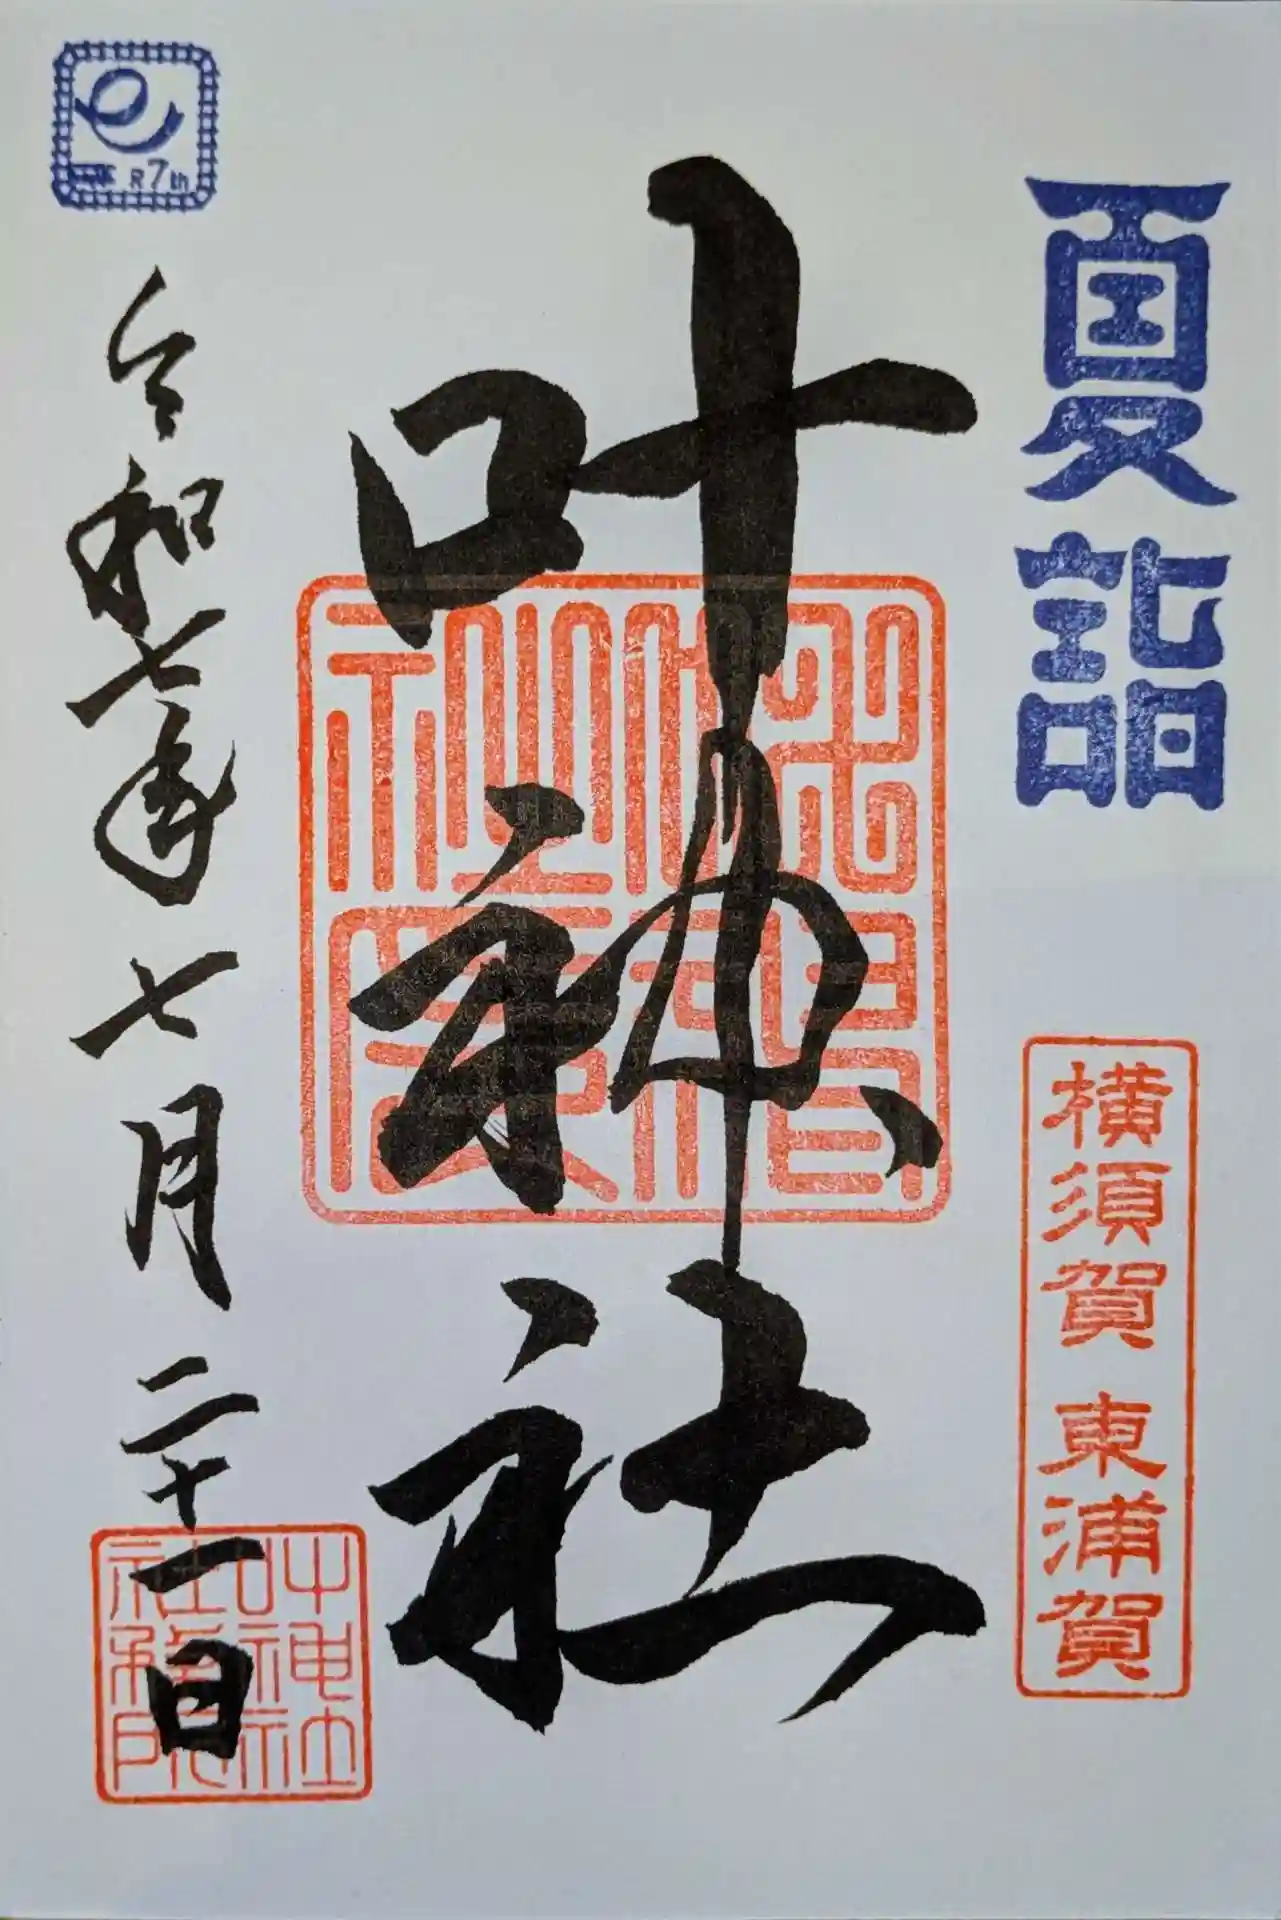 夏詣
横須賀 東浦賀
叶神社
令和七年七月二十一日
叶神社社務所
R7th